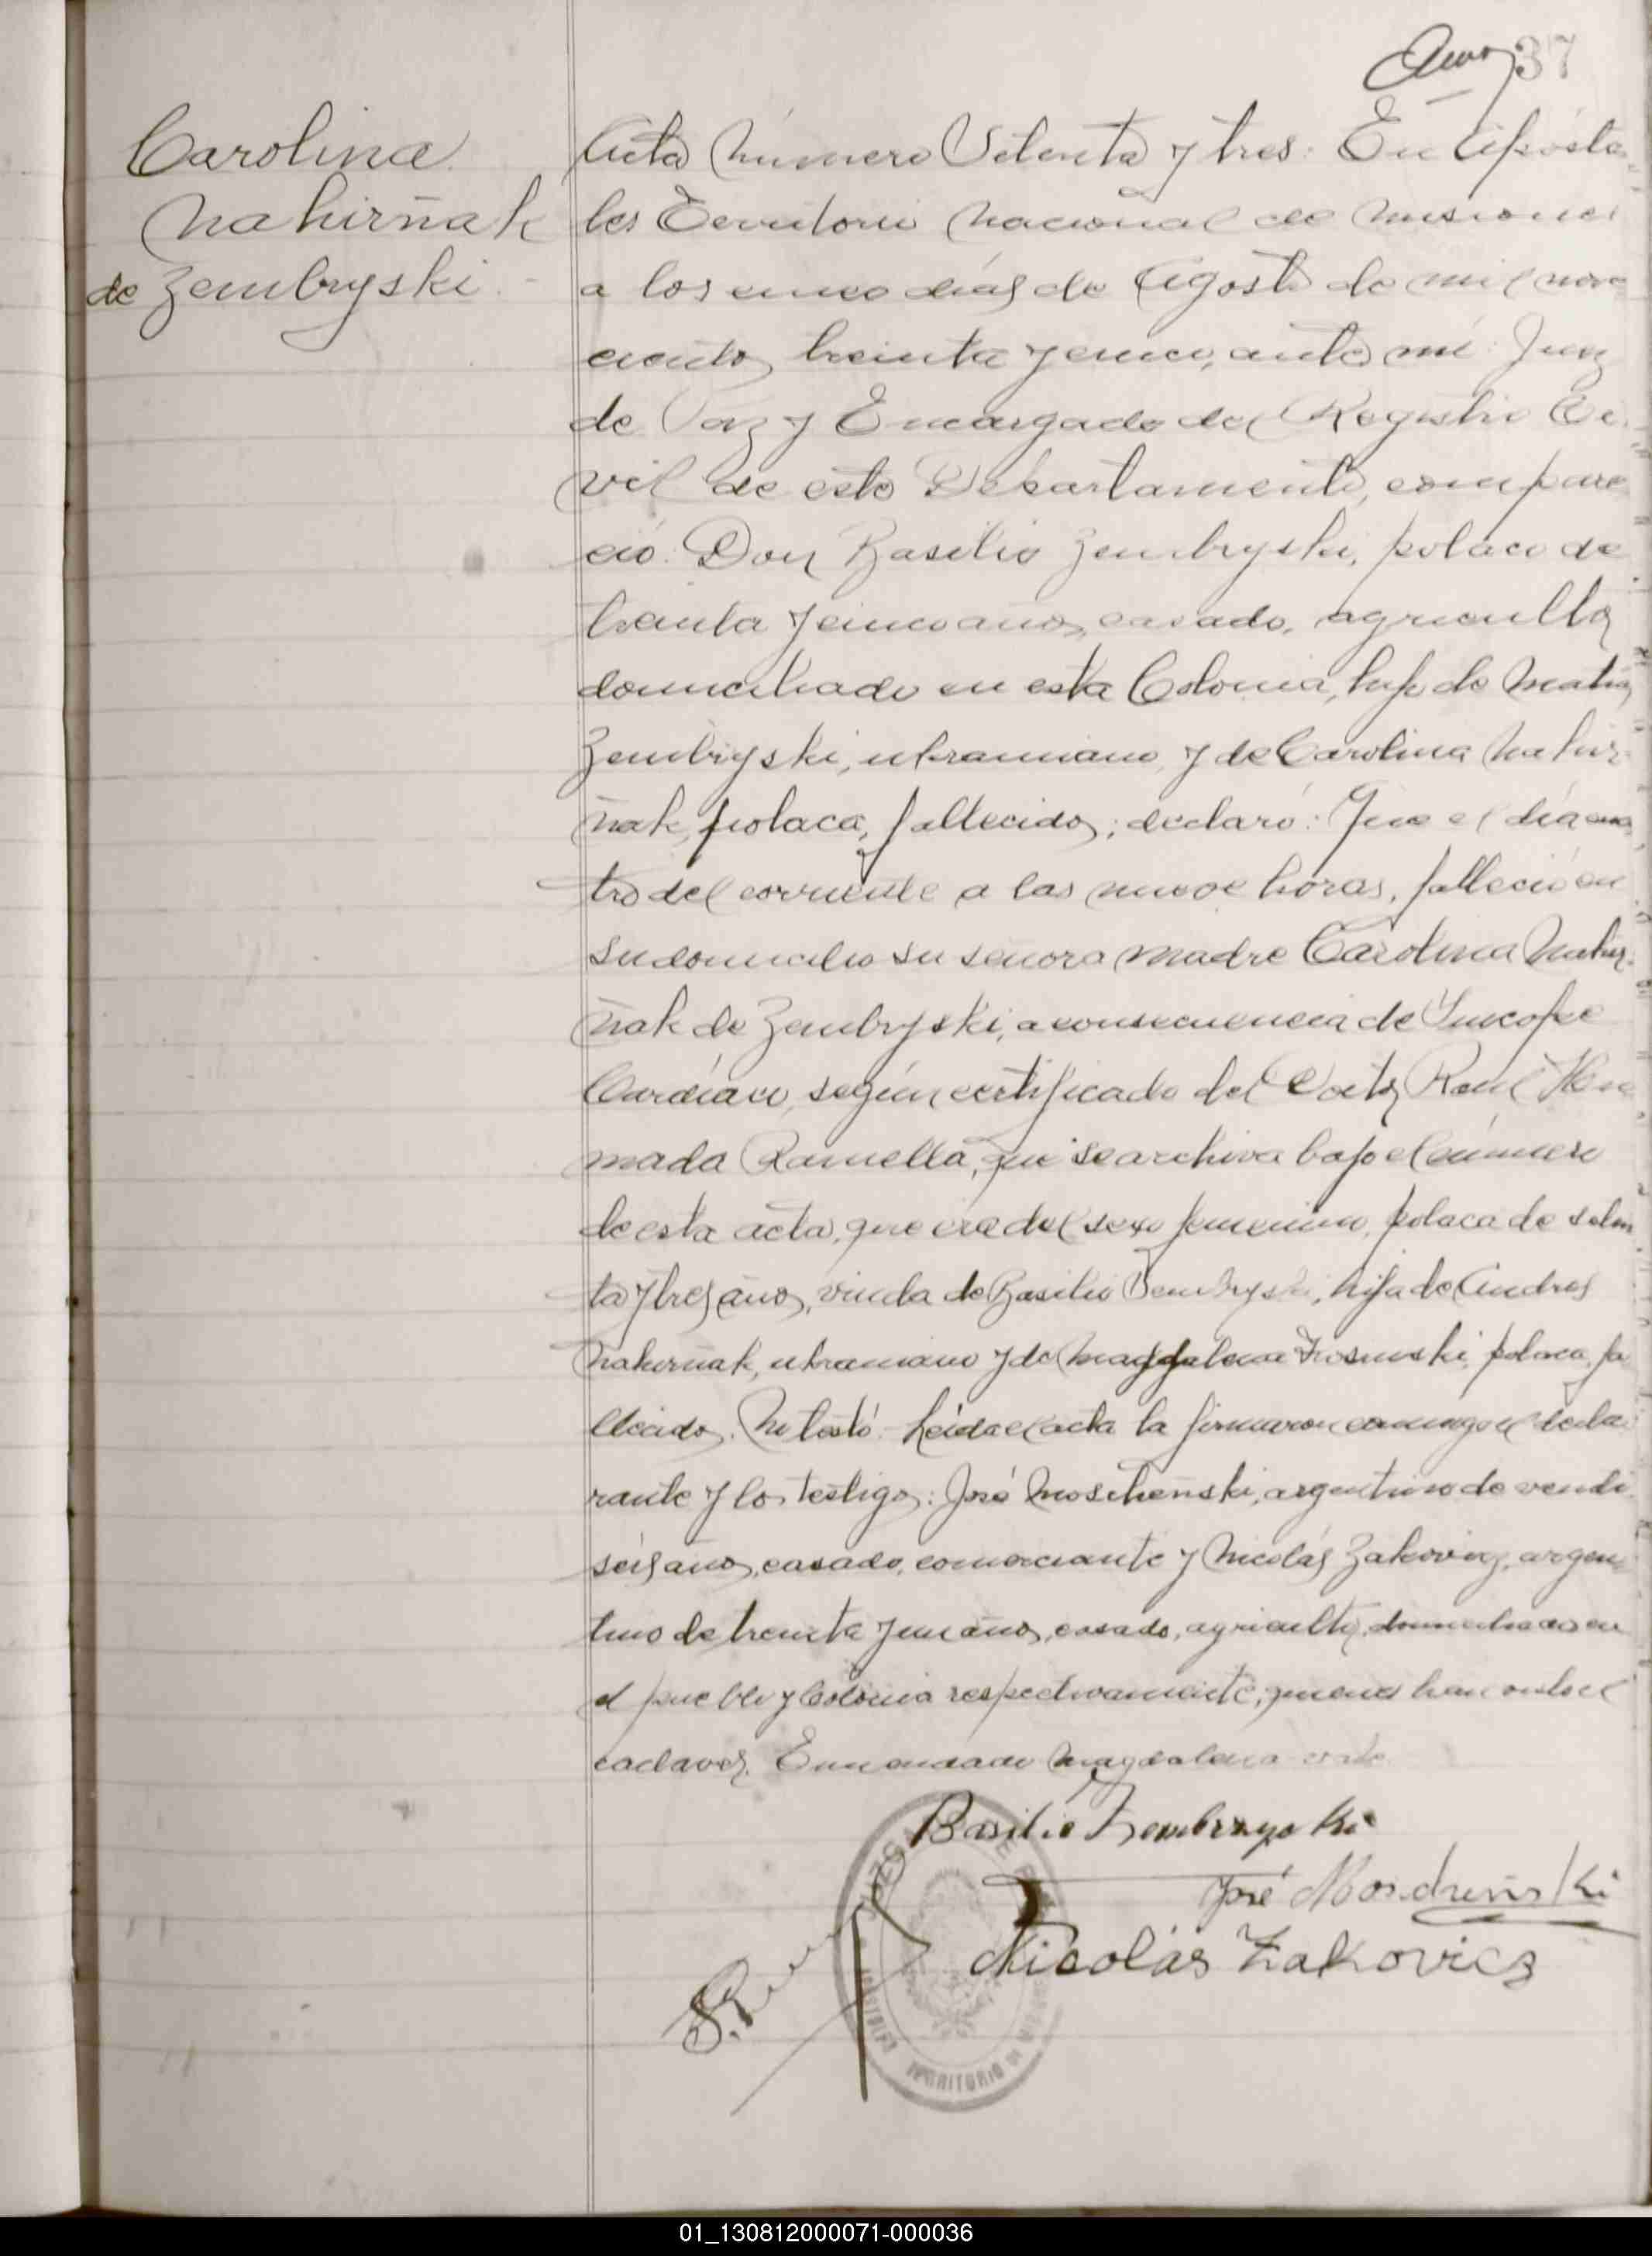 37
Carolina
Nahirñak
de Zembryski.-
Acta Número Setenta y tres: En Apósto-
les Territorio Nacional de Misiones
a los cinco días de Agosto de mil nove
cientos treinta y cinco, ante mí: Juez
de Paz y Encargado del Registro Ci-
vil de este Departamento, compare
ció: Don Basilio Zembryski, polaco de
treinta y cinco años, casado, agricultor
domiciliado en esta Colonia, hijo de Matias
Zembryski, ukraniano, y de Carolina Nahir-
ñak, polaca, fallecidos; declaró: Que el día cua
tro del corriente a las nueve horas, falleció en
su domicilio su señora madre Carolina Nahir-
ñak de Zembryski, a consecuencia de Sincope
Cardíaco, según certificado del Doctor Raul
mada Ramella, que se archiva bajo el número
de esta acta, que era del sexo femenino, polaca de seten
ta y tres años, viuda de Basilio Zembryski, hija de Andres
Nahirñak, ukraniano y de Magdalena polaca, fa
llecidos. No testó.- Leida el acta la firmaron conmigo el decla
rante y los testigos: José Moscheñski, argentino de venti
seis años, casado, comerciante y Nicolás Zakovicz, argen
tino de treinta y un años, casado, agricultor, domiciliados en
el pueblo y Colonia respectivamente, quienes han visto el
cadaver. Enmendado Magdalena vale.
Basilio Zembrzyski
José Moscheñski
Nicolás Zakovicz
JUZGADO DE PAZ
APOSTOLES TERRITORIO DE MISIONES
01_130812000071-000036